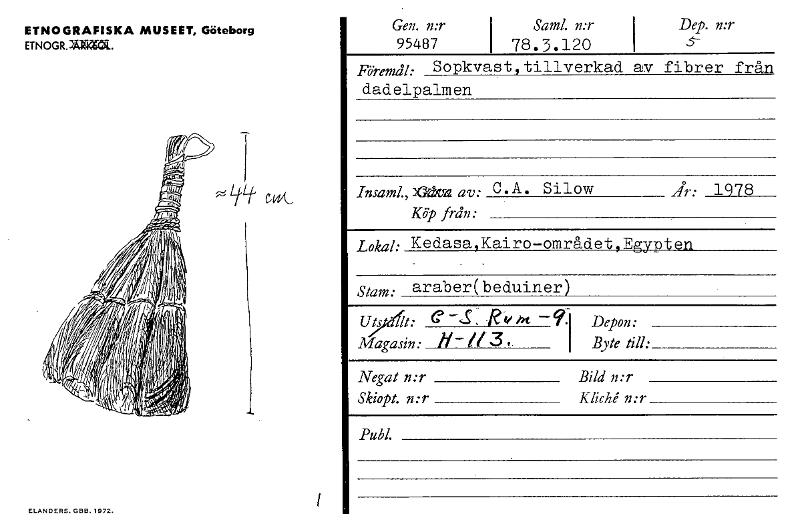 ETNOGRAFISKA MUSEET, Göteborg
ETNOGR. ARKEOL.
≈44 cm
1
ELANDERS. GBB. 1972.
Gen. n:r Saml. n:r Dep. n:r
95487 78.3.120 5
Föremål: Sopkvast,tillverkad av fibrer från
dadelpalmen
Insaml., Gåva av: C.A. Silow År: 1978
Köp från:
Lokal: Kedasa,Kairo-området,Egypten
Stam: araber(beduiner)
Utställt: C-S. Rum-9. Depon:
Magasin: H-113. Byte till:
Negat n:r Bild n:r
Skiopt. n:r Kliché n:r
Publ.